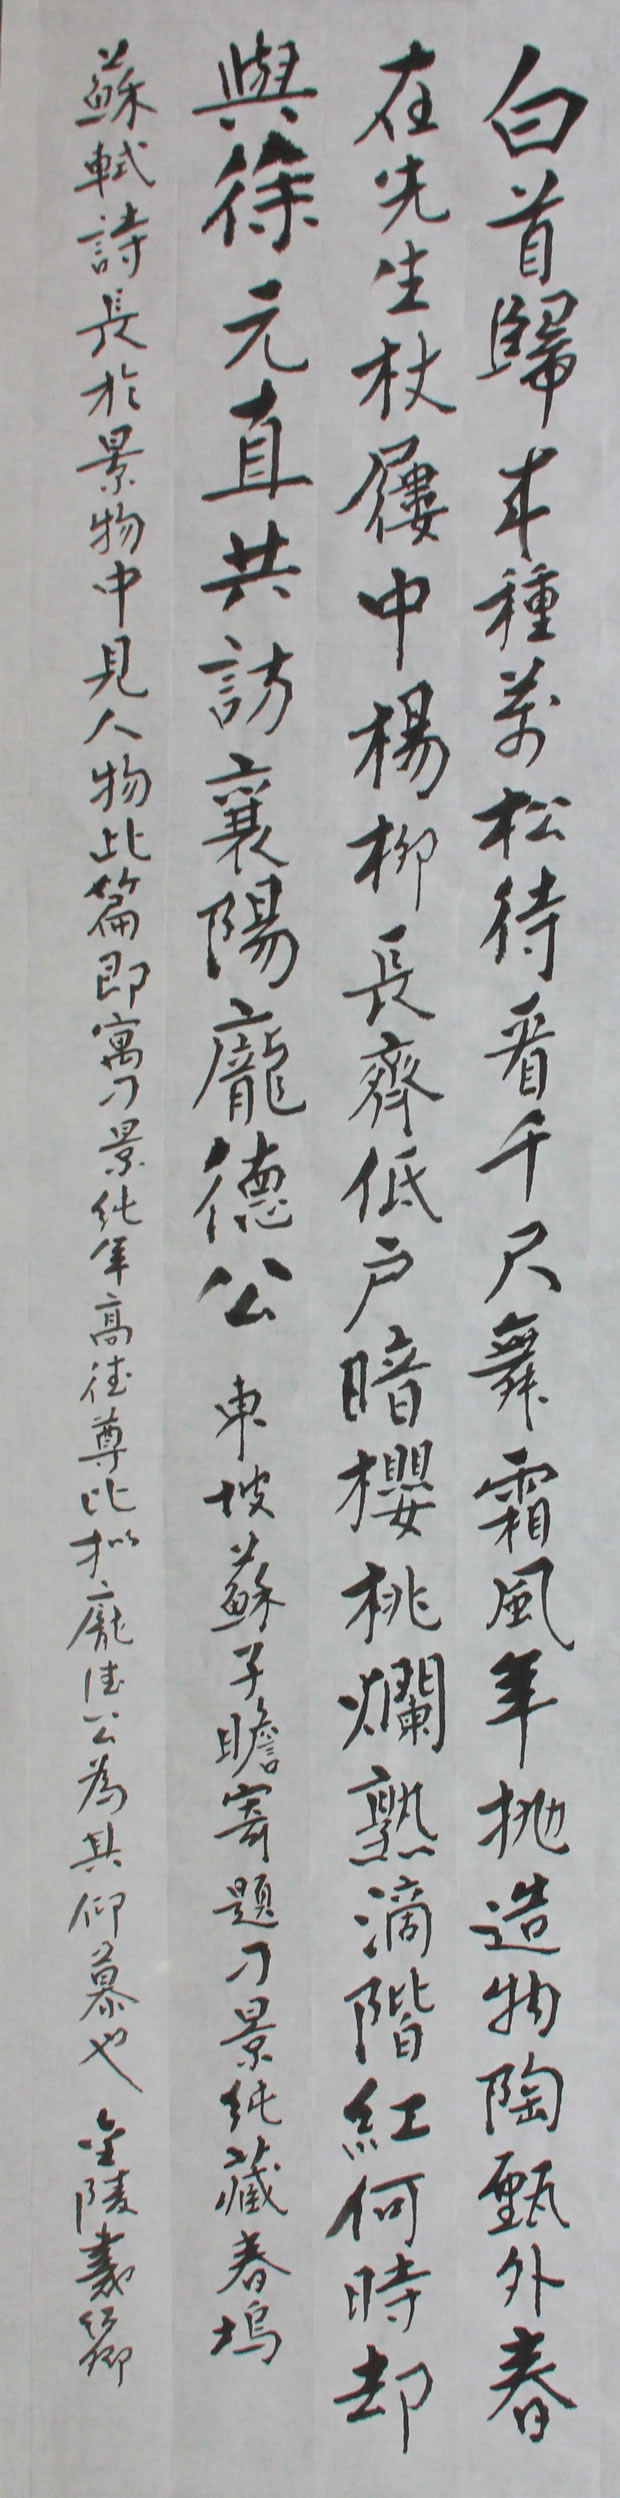 白首歸來種萬松待看千尺舞霜風年抛造物陶甄外春
在先生杖屨中楊柳長齊低戶暗櫻桃爛熟滴階紅何時却
與徐元直共訪襄陽龐德公 東坡蘇子瞻寄題刁景純藏春塢
蘇軾詩長於景物中見人物此篇即寓刁景純年高德尊比拟龐德公為其仰慕也 金陵